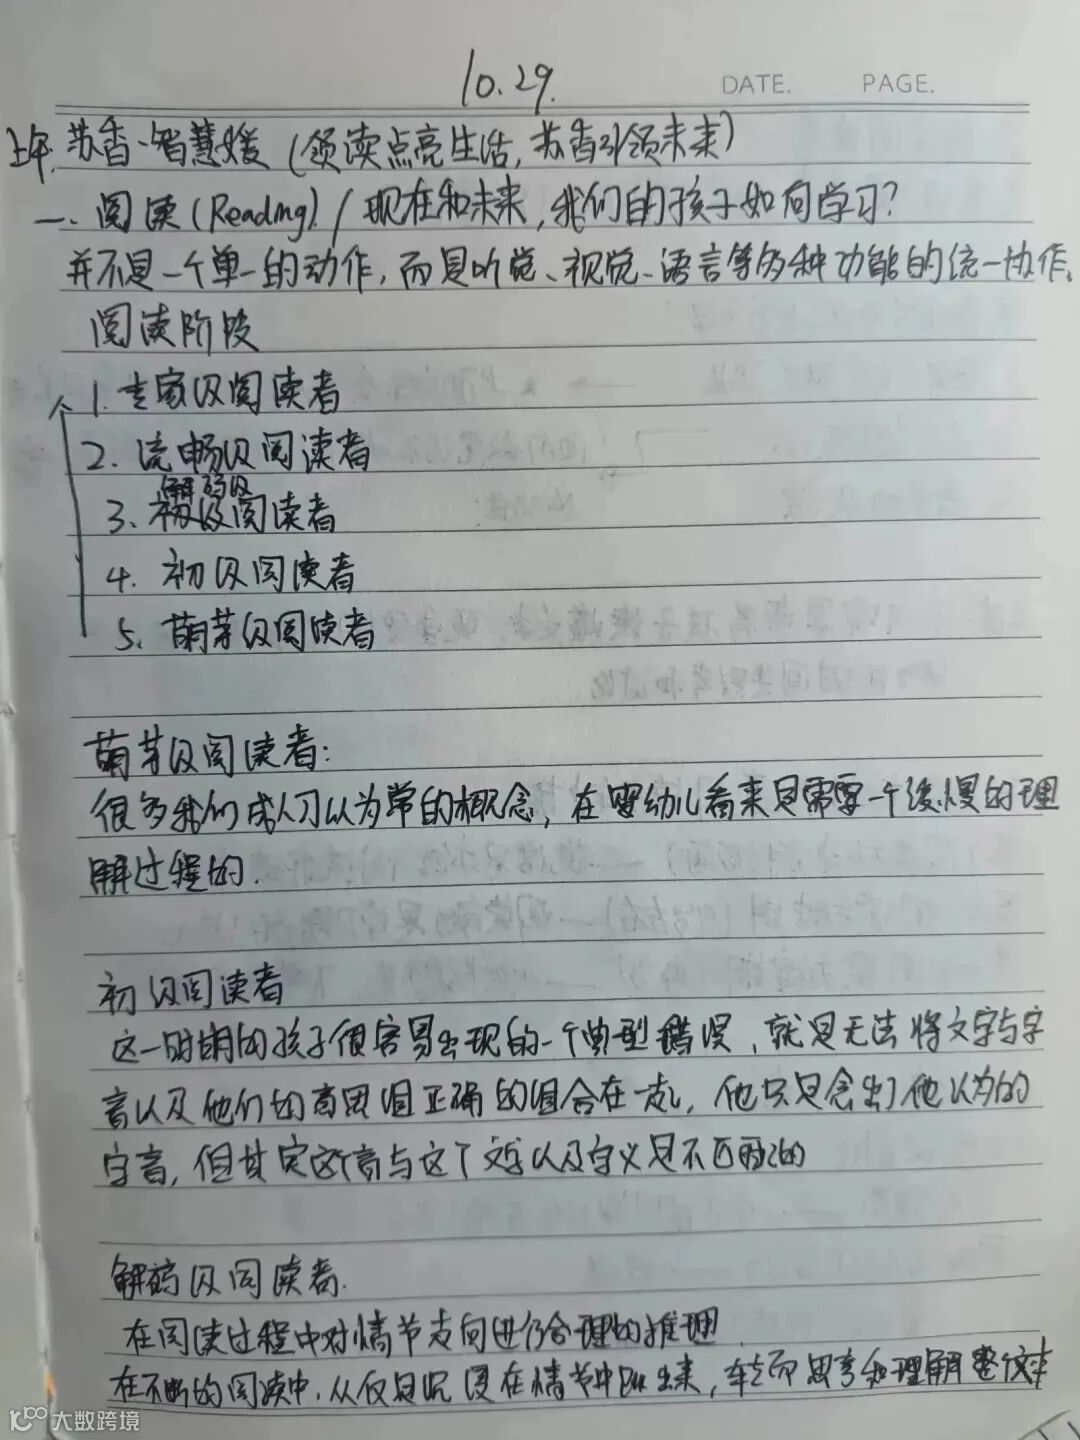 10.29.
DATE. PAGE.
上午. 苏香·智慧媛(领读点亮生活,苏香引领未来)
一. 阅读(Reading) / 现在和未来,我们的孩子如何学习?
并不是一个单一的动作,而是听觉、视觉、语言等多种功能的统一协作。
阅读阶段
1. 专家级阅读者
2. 流畅级阅读者
解码级
3. 初级阅读者
4. 初级阅读者
5. 萌芽级阅读者
萌芽级阅读者:
很多我们成人习以为常的概念,在婴幼儿看来是需要一个缓慢的理
解过程的.
初级阅读者
这一时期的孩子很容易出现的一个典型错误,就是无法将文字与字
音以及他们的意思相正确的组合在一起,他只是念出了他认为的
字音,但其实这个音与这个文字以及字义是不匹配的
解码级阅读者.
在阅读过程中对情节走向进行合理的推理
在不断的阅读中,从仅是沉浸在情节中跳出来,转而思考和理解整个文本
大数跨境